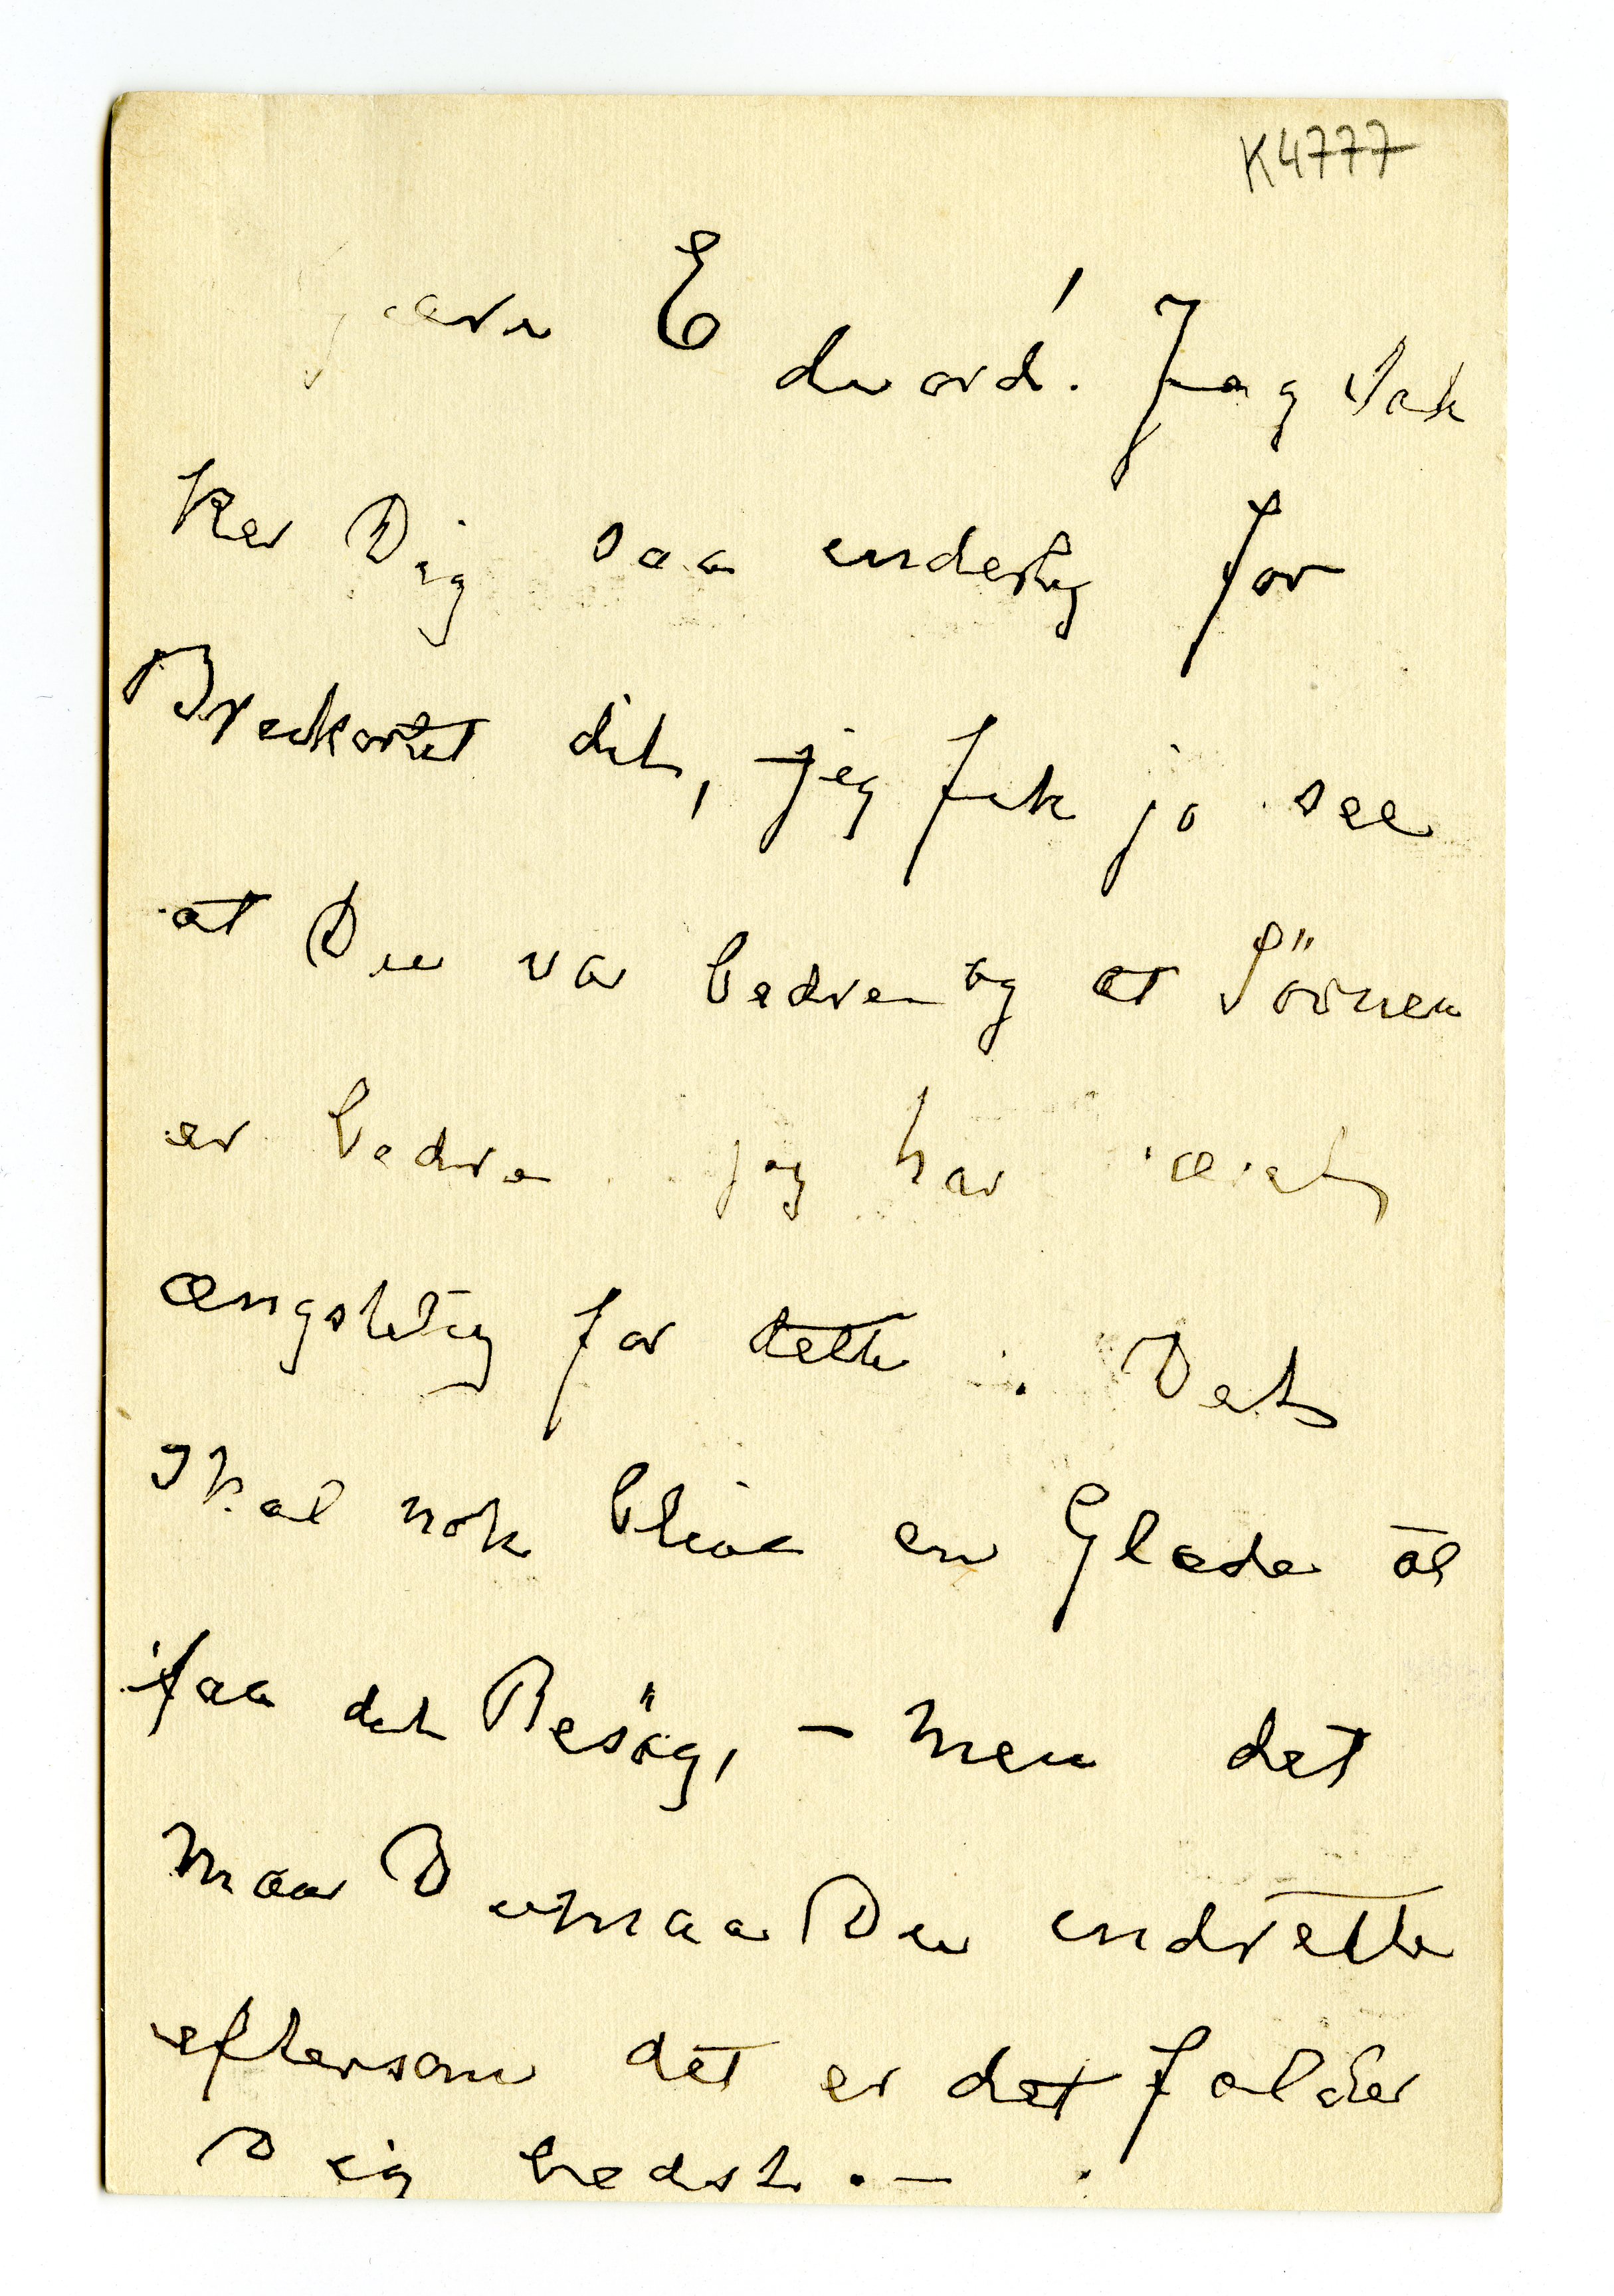 K4777
kjære Edvard! Jeg tak
ker Dig saa inderlig for
Brevkortet dit, jeg fik jo see
at Du var bedre og at Sönnen
er bedre jeg har været
ængstelig for dette. Det
skal nok blive en Glæde at
faa det Besög, – men det
maa Du maa Du indrette
eftersom det er det falder
Dig bedst. –